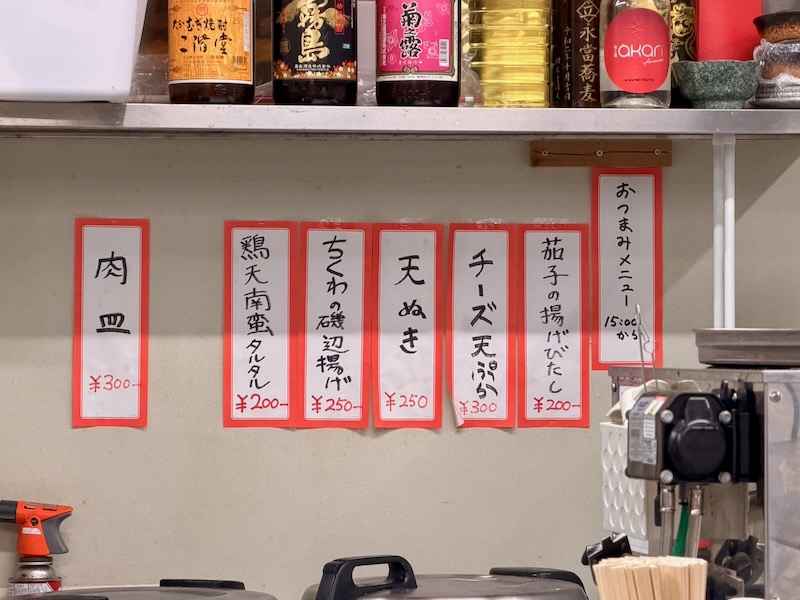 大分むぎ焼酎
二階堂
霧島
菊之露
akari
立永當蕎麦
おつまみメニュー
15:00
から
茄子の揚げびたし
¥200-
チーズ天ぷら
¥300
天ぬき
¥250
ちくわの磯辺揚げ
¥250-
鶏天南蛮タルタル
¥200-
肉皿
¥300-